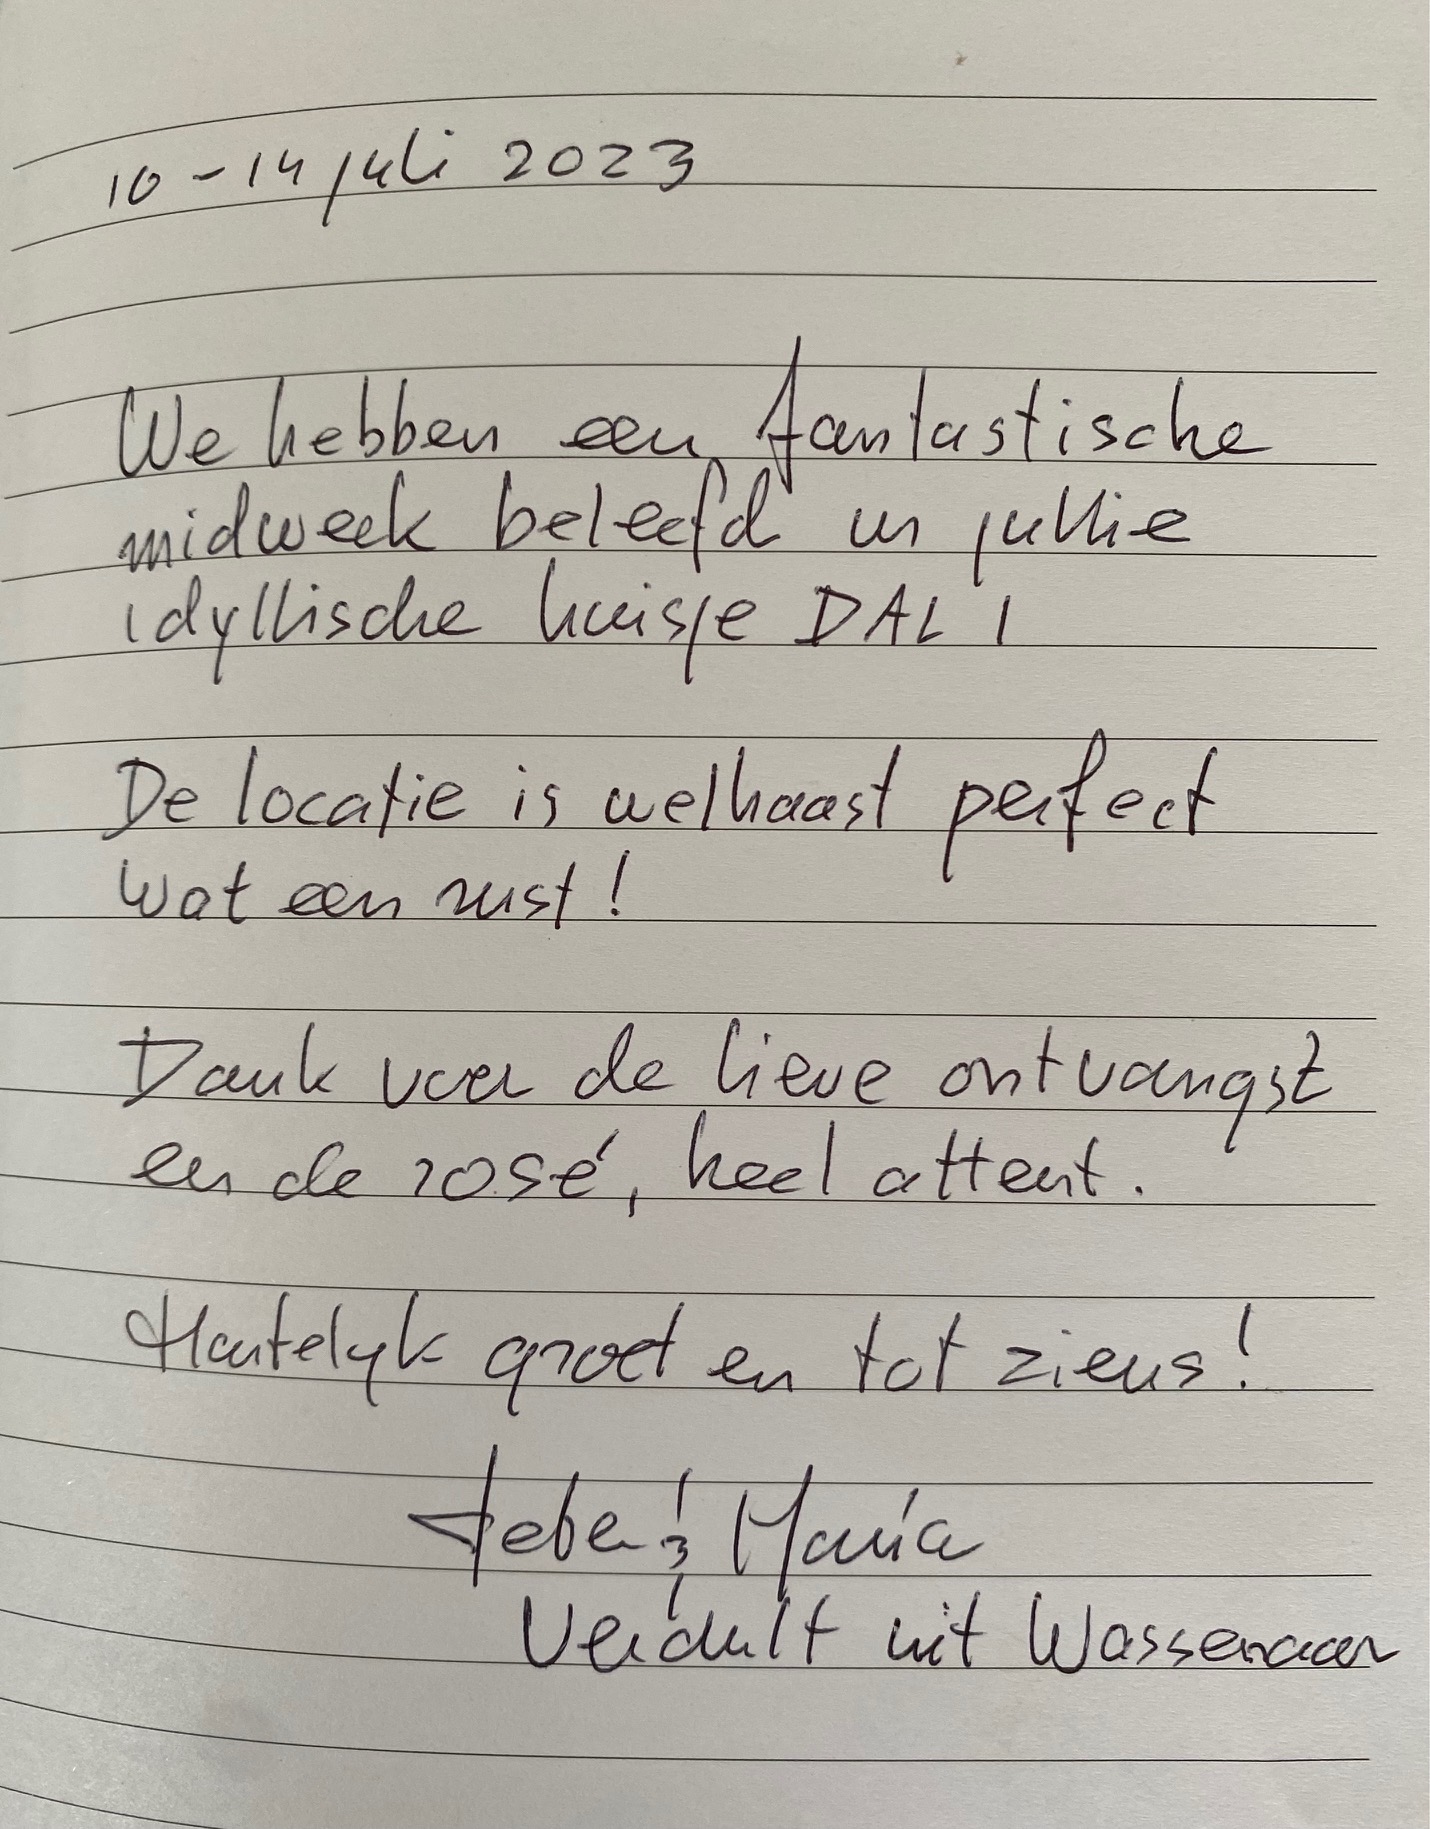 10 - 14 juli 2023
We hebben een fantastische
midweek beleefd in jullie
idyllische huisje DALI
De locatie is welhaast perfect
wat een rust!
Dank voor de lieve ontvangst
en de rosé, heel attent.
Hartelijk groet en tot ziens!
& Maria
Verdult uit Wassenaar